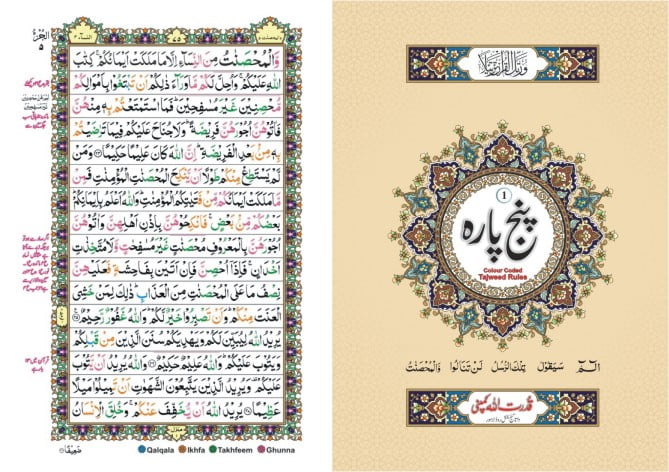 الجزء ٥
النسآء ٤
والمحصنت ٥
وَّالْمُحْصَنٰتُ مِنَ النِّسَآءِ اِلَّا مَا مَلَكَتْ اَيْمَانُكُمْ كِتٰبَ
اللّٰهِ عَلَيْكُمْ وَاُحِلَّ لَكُمْ مَّا وَرَآءَ ذٰلِكُمْ اَنْ تَبْتَغُوْا بِاَمْوَالِكُمْ
مُّحْصِنِيْنَ غَيْرَ مُسٰفِحِيْنَ فَمَا اسْتَمْتَعْتُمْ بِهٖ مِنْهُنَّ
فَاٰتُوْهُنَّ اُجُوْرَهُنَّ فَرِيْضَةً وَلَا جُنَاحَ عَلَيْكُمْ فِيْمَا تَرٰضَيْتُمْ
بِهٖ مِنْۢ بَعْدِ الْفَرِيْضَةِ اِنَّ اللّٰهَ كَانَ عَلِيْمًا حَكِيْمًا ﴿٢٤﴾ وَمَنْ
لَّمْ يَسْتَطِعْ مِنْكُمْ طَوْلًا اَنْ يَّنْكِحَ الْمُحْصَنٰتِ الْمُؤْمِنٰتِ فَمِنْ
مَّا مَلَكَتْ اَيْمَانُكُمْ مِّنْ فَتَيٰتِكُمُ الْمُؤْمِنٰتِ وَاللّٰهُ اَعْلَمُ بِاِيْمَانِكُمْ
بَعْضُكُمْ مِّنْۢ بَعْضٍ فَانْكِحُوْهُنَّ بِاِذْنِ اَهْلِهِنَّ وَاٰتُوْهُنَّ
اُجُوْرَهُنَّ بِالْمَعْرُوْفِ مُحْصَنٰتٍ غَيْرَ مُسٰفِحٰتٍ وَّلَا مُتَّخِذٰتِ
اَخْدَانٍ فَاِذَآ اُحْصِنَّ فَاِنْ اَتَيْنَ بِفَاحِشَةٍ فَعَلَيْهِنَّ
نِصْفُ مَا عَلَى الْمُحْصَنٰتِ مِنَ الْعَذَابِ ذٰلِكَ لِمَنْ خَشِيَ
الْعَنَتَ مِنْكُمْ وَاَنْ تَصْبِرُوْا خَيْرٌ لَّكُمْ وَاللّٰهُ غَفُوْرٌ رَّحِيْمٌ ﴿٢٥﴾
يُرِيْدُ اللّٰهُ لِيُبَيِّنَ لَكُمْ وَيَهْدِيَكُمْ سُنَنَ الَّذِيْنَ مِنْ قَبْلِكُمْ
وَيَتُوْبَ عَلَيْكُمْ وَاللّٰهُ عَلِيْمٌ حَكِيْمٌ ﴿٢٦﴾ وَاللّٰهُ يُرِيْدُ اَنْ يَّتُوْبَ
عَلَيْكُمْ وَيُرِيْدُ الَّذِيْنَ يَتَّبِعُوْنَ الشَّهَوٰتِ اَنْ تَمِيْلُوْا مَيْلًا
عَظِيْمًا ﴿٢٧﴾ يُرِيْدُ اللّٰهُ اَنْ يُّخَفِّفَ عَنْكُمْ وَخُلِقَ الْاِنْسَانُ
ضَعِيْفًا
منزل ١
Qalqala Ikhfa Takhfeem Ghunna
وَرَتِّلِ الْقُرْاٰنَ تَرْتِيْلًا
1
پنج پارہ
Colour Coded
Tajweed Rules
الٓـمّٓ سَيَقُوْلُ تِلْكَ الرُّسُلُ لَنْ تَنَالُوا وَالْمُحْصَنٰتُ
قدرت اللہ کمپنی